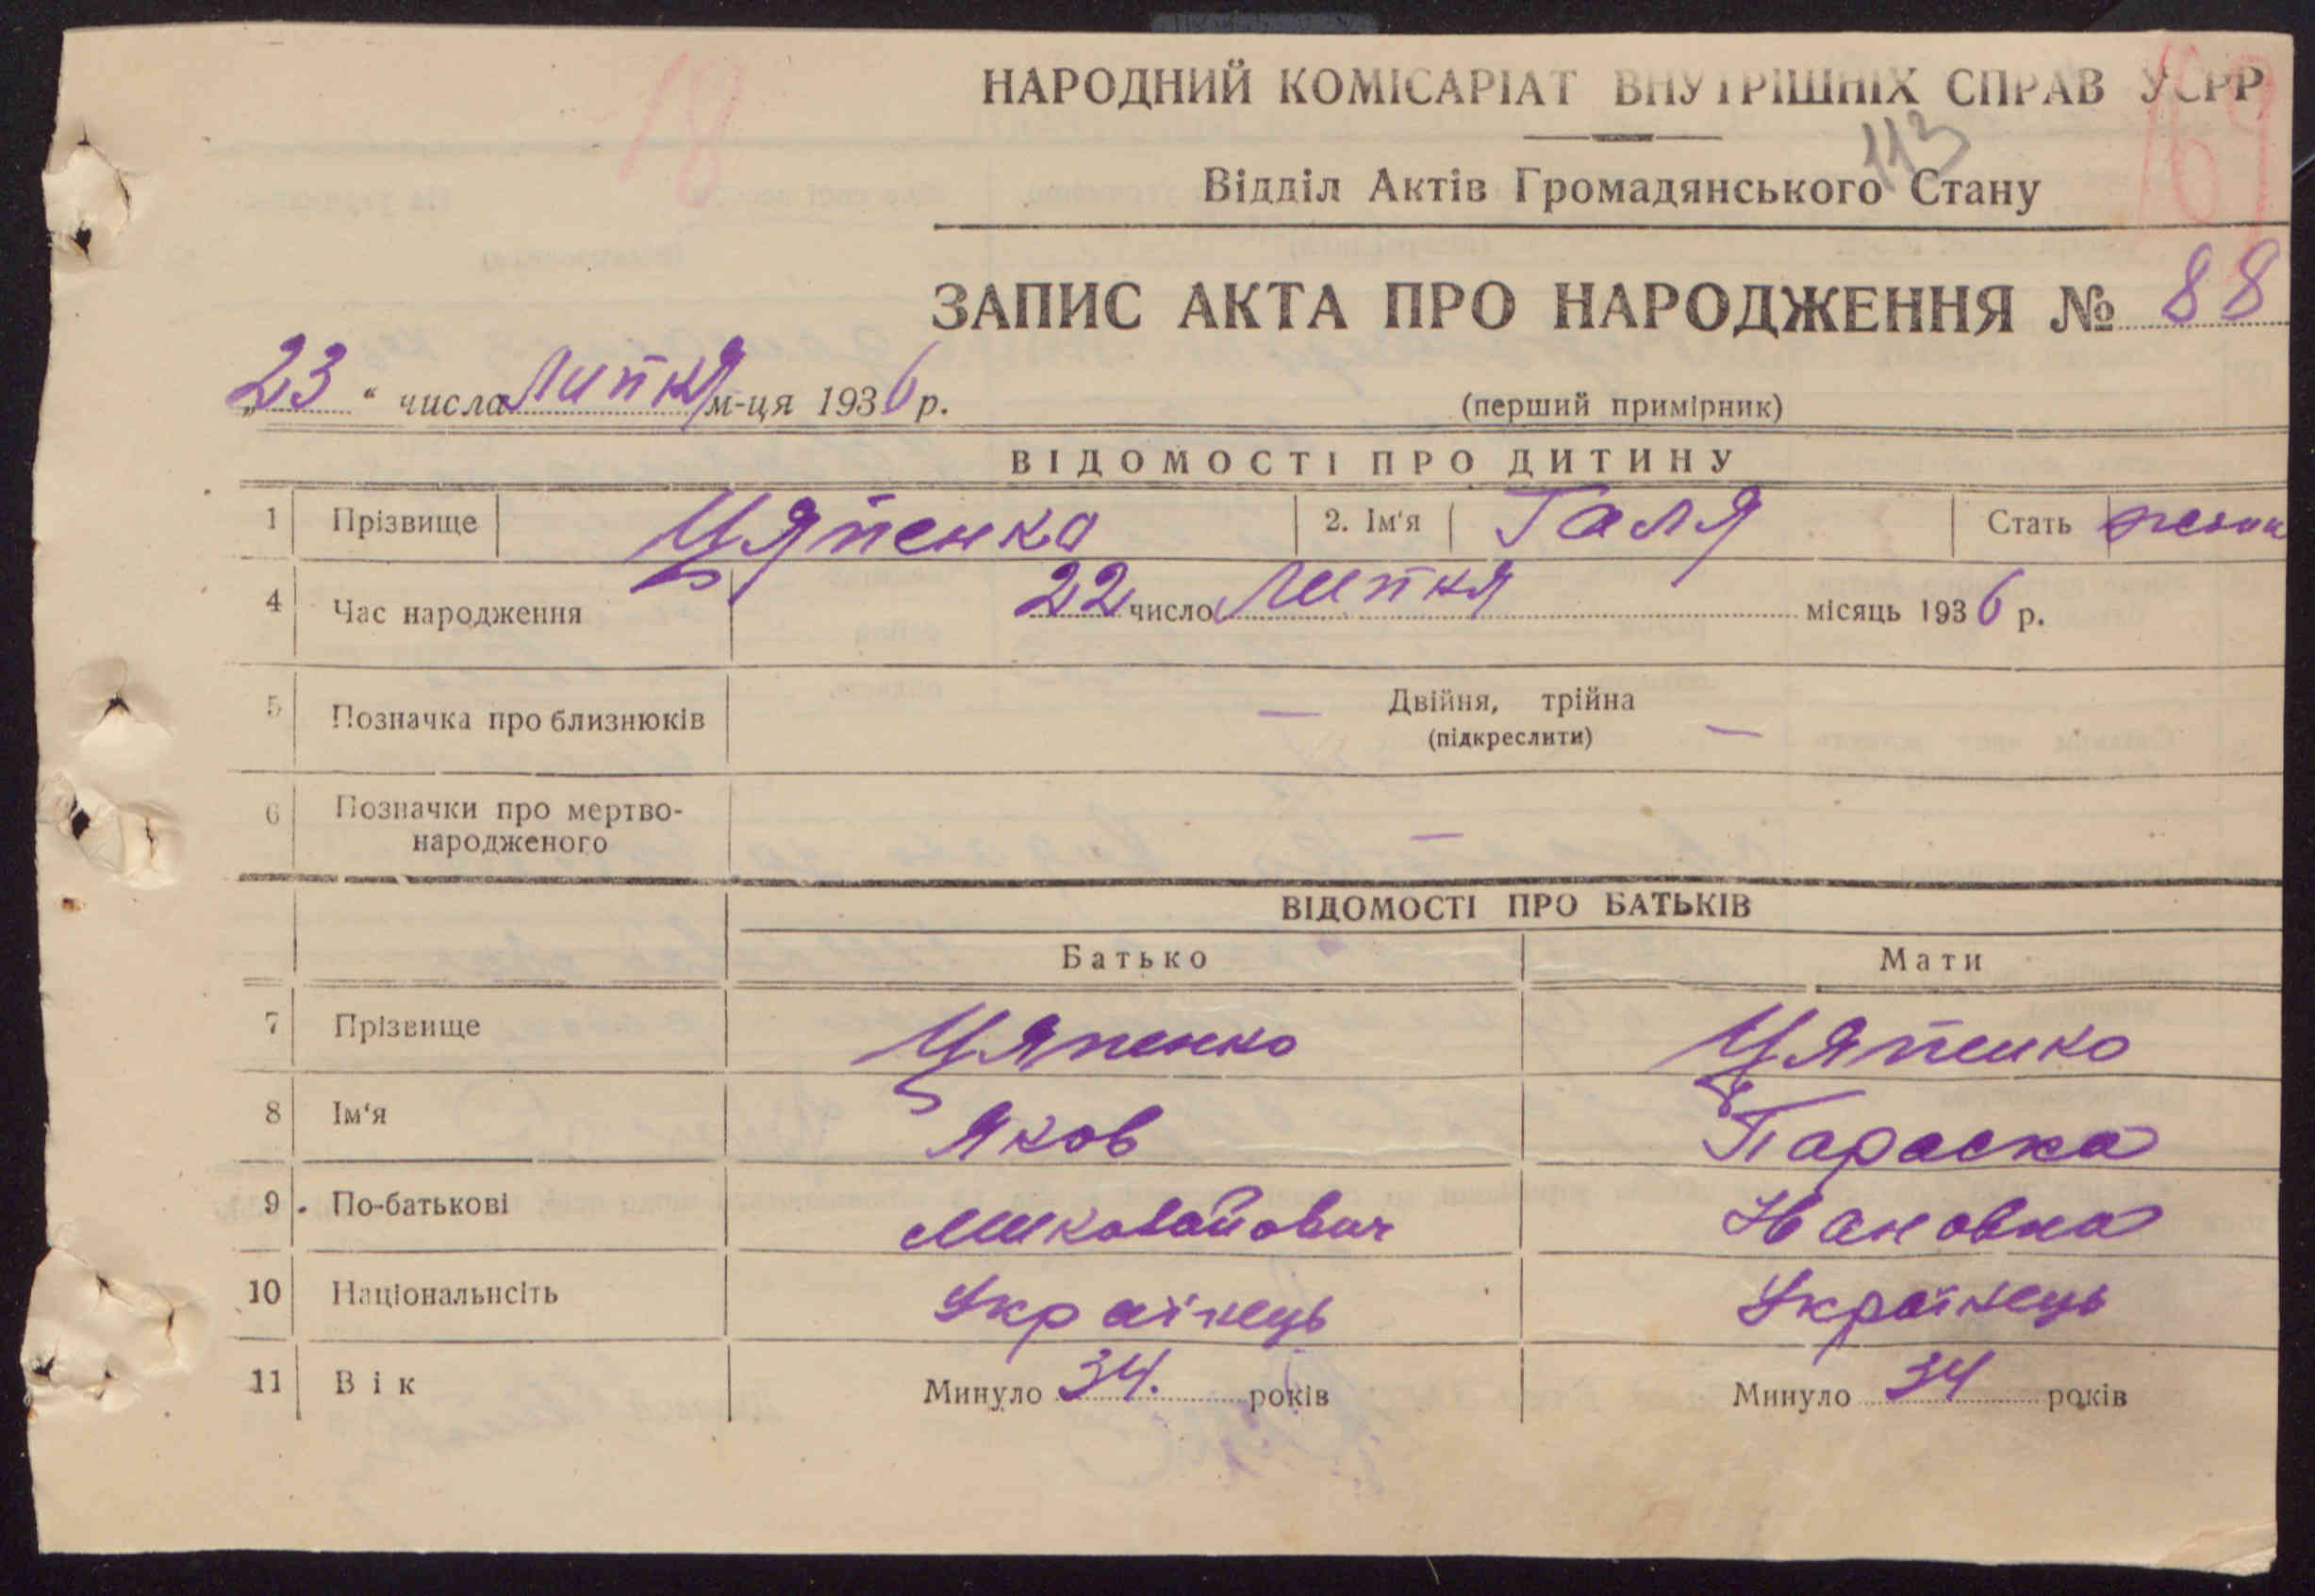 НАРОДНИЙ КОМІСАРІАТ ВНУТРІШНІХ СПРАВ УСРР
113
Відділ Актів Громадянського Стану
ЗАПИС АКТА ПРО НАРОДЖЕННЯ № 88
„23“ числа Липня м-ця 1936 р.
(перший примірник)
ВІДОМОСТІ ПРО ДИТИНУ
1 Прізвище Цяпенко 2. Ім'я Галя Стать
4 Час народження 22 число Липня місяць 1936 р.
5 Позначка про близнюків — Двійня, трійна —
(підкреслити)
6 Позначки про мертво-
народженого —
ВІДОМОСТІ ПРО БАТЬКІВ
Батько Мати
7 Прізвище Цяпенко Цяпенко
8 Ім'я Яков Параска
9 По-батькові Миколайович Ивановна
10 Національнсіть Українець Українець
11 Вік Минуло 34. років Минуло 34 років